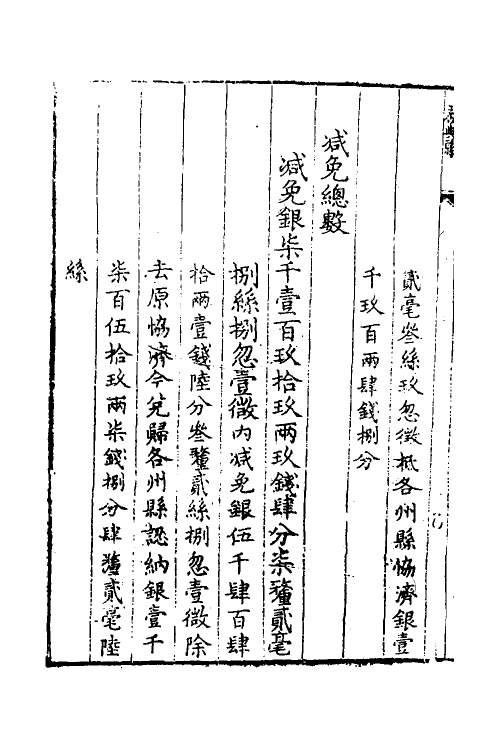 貳毫叁絲玖忽徵抵各州縣恊濟銀壹
千玖百兩肆錢捌分
减免總數
减免銀柒千壹百玖拾玖兩玖錢肆分柒釐貳毫
捌絲捌忽壹微內减免銀伍千肆百肆
拾兩壹錢陸分叁釐貳絲捌忽壹微除
去原恊濟今兌歸各州縣認納銀壹千
柒百伍拾玖兩柒錢捌分肆釐貳毫陸
絲